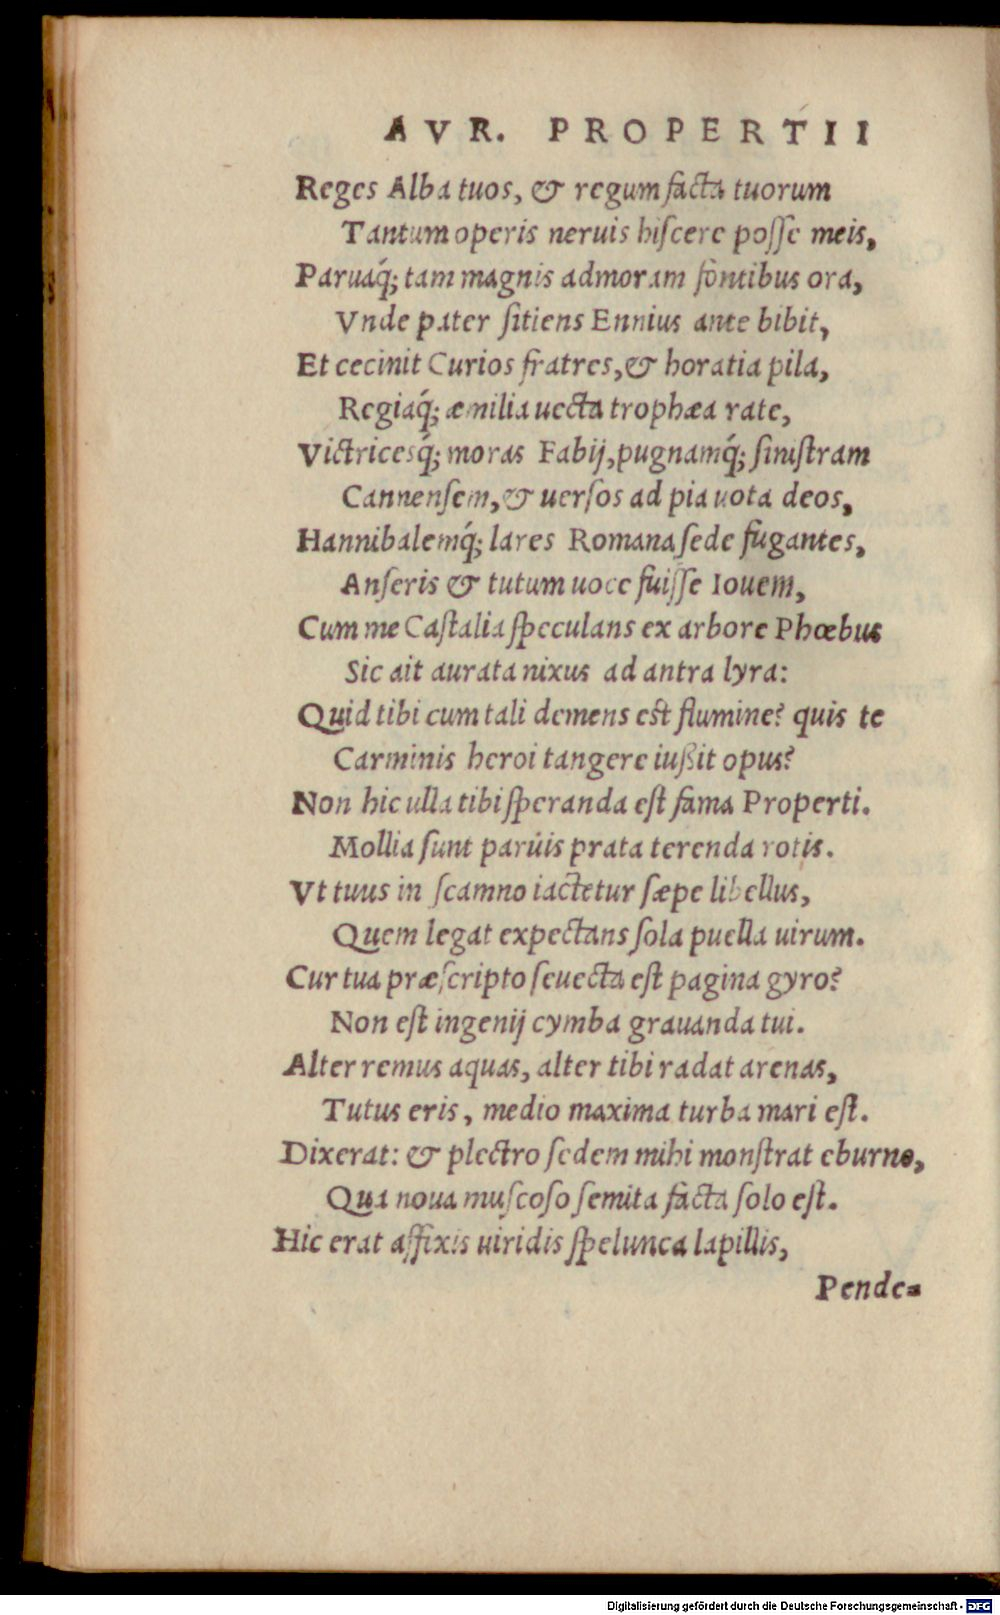 AVR. PROPERTII
Reges Alba tuos, & regum facta tuorum
Tantum operis neruis hiſcere poſſe meis,
Paruaq́; tam magnis admoram fontibus ora,
Vnde pater ſitiens Ennius ante bibit,
Et cecinit Curios fratres, & horatia pila,
Regiaq́; æmilia uecta trophæa rate,
Victricesq́; moras Fabij, pugnamq́; ſiniſtram
Cannenſem, & uerſos ad pia uota deos,
Hannibalemq́; lares Romana ſede fugantes,
Anſeris & tutum uoce fuiſſe Iouem,
Cum me Caſtalia ſpeculans ex arbore Phœbus
Sic ait aurata nixus ad antra lyra:
Quid tibi cum tali demens est flumine? quis te
Carminis heroi tangere iußit opus?
Non hic ulla tibi ſperanda eſt fama Properti.
Mollia ſunt paruis prata terenda rotis.
Vt tuus in ſcamno iactetur ſæpe libellus,
Quem legat expectans ſola puella uirum.
Cur tua præſcripto ſeuecta eſt pagina gyro?
Non eſt ingenij cymba grauanda tui.
Alter remus aquas, alter tibi radat arenas,
Tutus eris, medio maxima turba mari eſt.
Dixerat: & plectro ſedem mihi monſtrat eburno,
Qua noua muſcoſo ſemita facta ſolo eſt.
Hic erat affixis uiridis ſpelunca lapillis,
Pende-
Digitalisierung gefördert durch die Deutsche Forschungsgemeinschaft - DFG